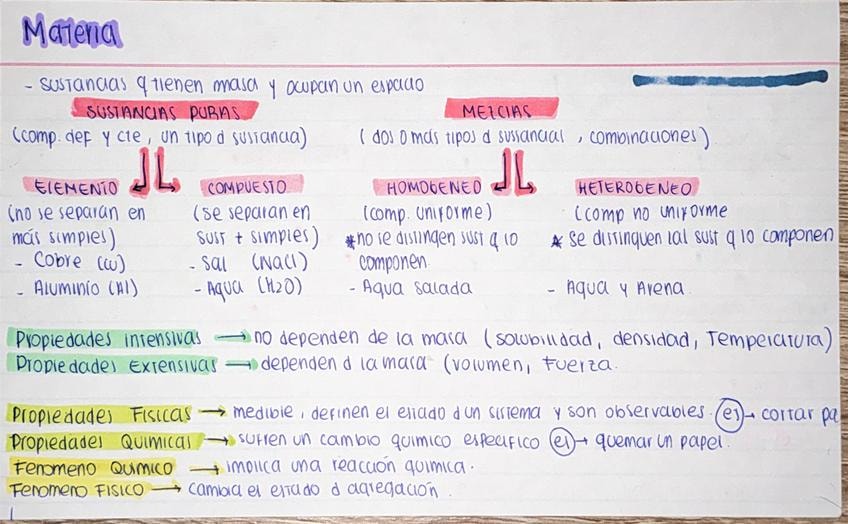 Materia
- sustancias q tienen masa y ocupan un espacio
SUSTANCIAS PURAS
MEZCLAS
(comp. def y cte, un tipo d sustancia)
(dos o más tipos d sustancias, combinaciones).
ELEMENTO
COMPUESTO
HOMOGENEO
HETEROGENEO
(no se separan en
más simples)
- Cobre (Cu)
- Aluminio (Al)
(se separan en
sust + simples)
- Sal (NaCl)
- Agua (H2O)
(comp. uniforme)
*no se distingen sust q lo
componen.
- Agua salada
(comp no uniforme
* se distinguen las sust q lo componen
- Agua y Arena.
Propiedades intensivas → no dependen de la masa (solubilidad, densidad, Temperatura)
Propiedades Extensivas → dependen d la masa (volumen, Fuerza.
Propiedades Fisicas → medible, definen el estado d un sistema y son observables. ej → cortar pa
Propiedades Quimicas → sufren un cambio quimico especifico ej → quemar un papel.
Fenomeno Quimico → implica una reacción quimica.
Fenomeno FISICO → cambia el estado d agregación.